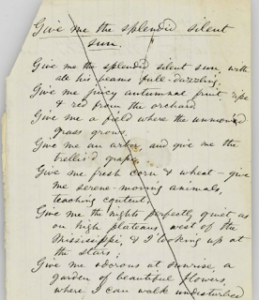 Give me the splendid silent
sun.
Give me the splendid silent sun, with
all his beams full-dazzling.
Give me juicy autumnal fruit, ripe
& red from the orchard
Give me a field where the unmowed
grass grows.
Give me an arbor, and give me the
trellis'd grape,
Give me fresh corn & wheat – give
me serene-moving animals,
teaching content.
Give me the nights perfectly quiet as
on high plateaus west of the
Mississippi, & I looking up at
the stars;
Give me odorous at sunrise, a
garden of beautiful flowers,
where I can walk undisturbed